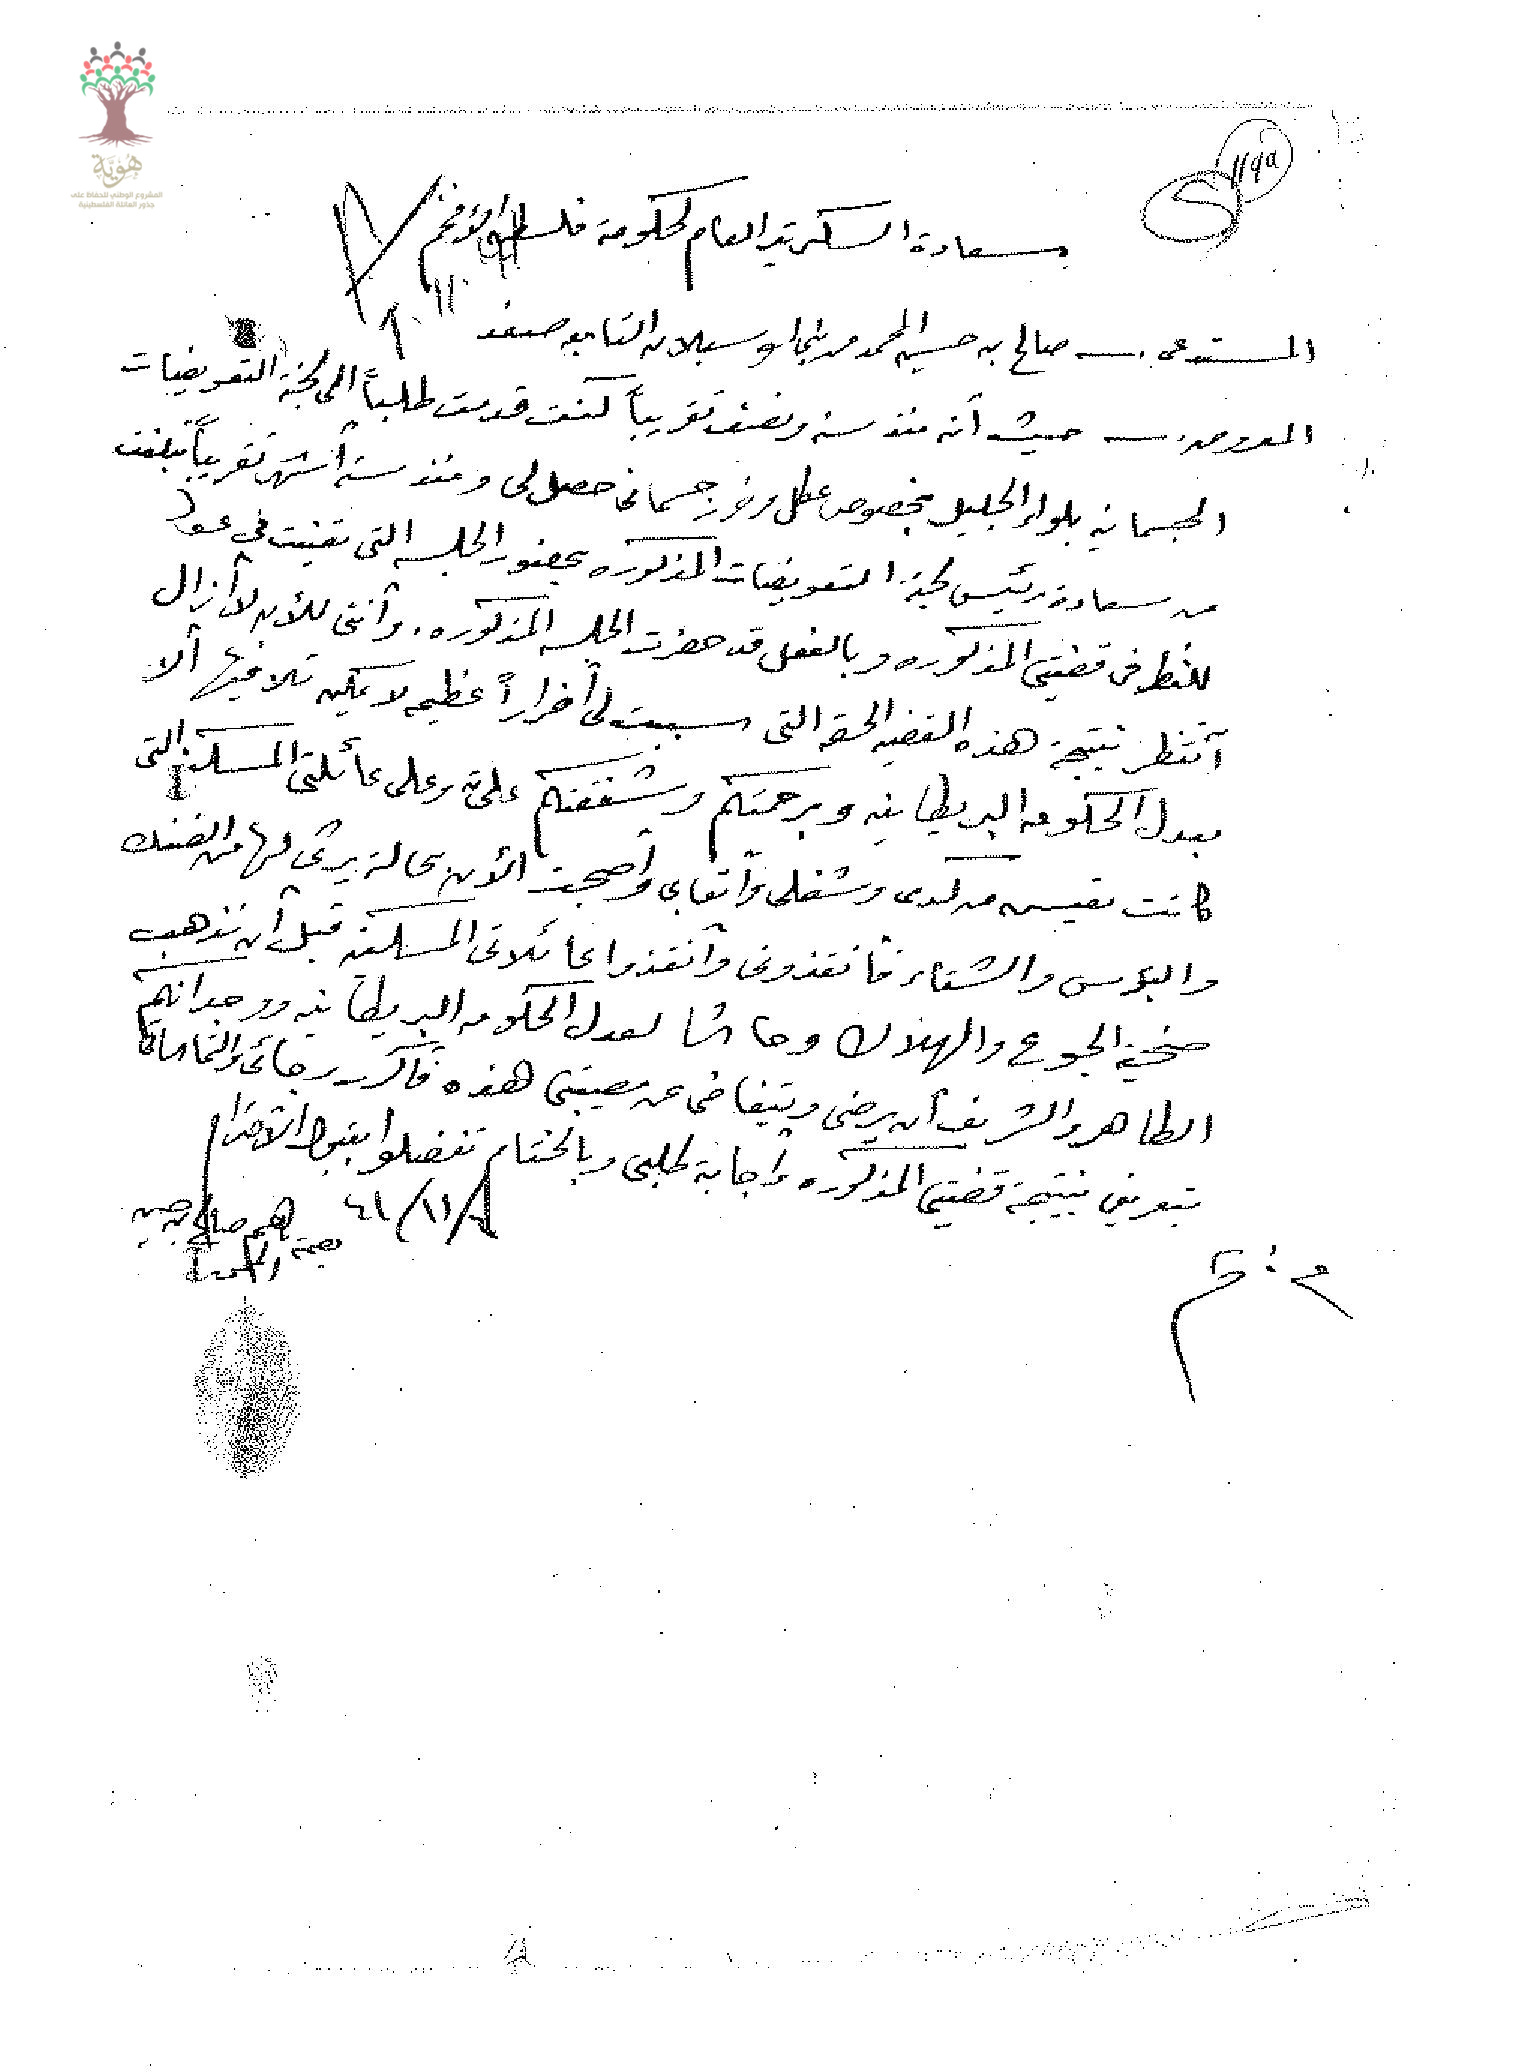 هُوِيَّة
المشروع الوطني للحفاظ على
جذور العائلة الفلسطينية
سعادة السكرتير العام لحكومة فلسطين الأفخم
المستدعي :ــ صالح بن حسين المحمد من السبلان التابعه صفد
المعروض :ــ حيث أنه منذ سنه ونصف تقريباً كنت قدمت طلباً الى لجنة التعويضات
الجسمانيه بلواء الجليل بخصوص عطل وضرر جسماني حصل لي ومنذ ستة أشهر تقريباً تبلغت
من سعادة رئيس لجنة التعويضات المذكوره بحضور الجلسه التي تعينت في
للنظر في قضيتي المذكوره وبالفعل قد حضرت الجلسه المذكوره . وأنني للأن لا أزال
أنتظر نتيجة هذه القضيه الحقه التي سببت لي أضراراً عظيمه لا يمكن تلافيها ألا
بعدل الحكومه البريطانيه وبرحمتكم وشفقتكم عليّ وعلى عائلتي المسكينه التي
كانت تعيش من كدي وشغلي وأتعابي وأصبحت الأن بحالة يرثى لها من الضنك
والبؤس والشقاء فأنقذوني وأنقذوا عائلاتي المسكينه قبل أن تذهب
ضحية الجوع والهلاك وحاشا لعدل الحكومه البريطانيه ووجدانهم
الطاهر والشريف أن يرضى ويتغاضى عن مصيبتي هذه فأكرر رجائي والتماساتي
بتعريفي بنتيجة قضيتي المذكوره وأجابة طلبي وبالختام تفضلوا بقبول الأحترام
٤١/١١/
بصمة ابهم صالح بن حسين
المحمد